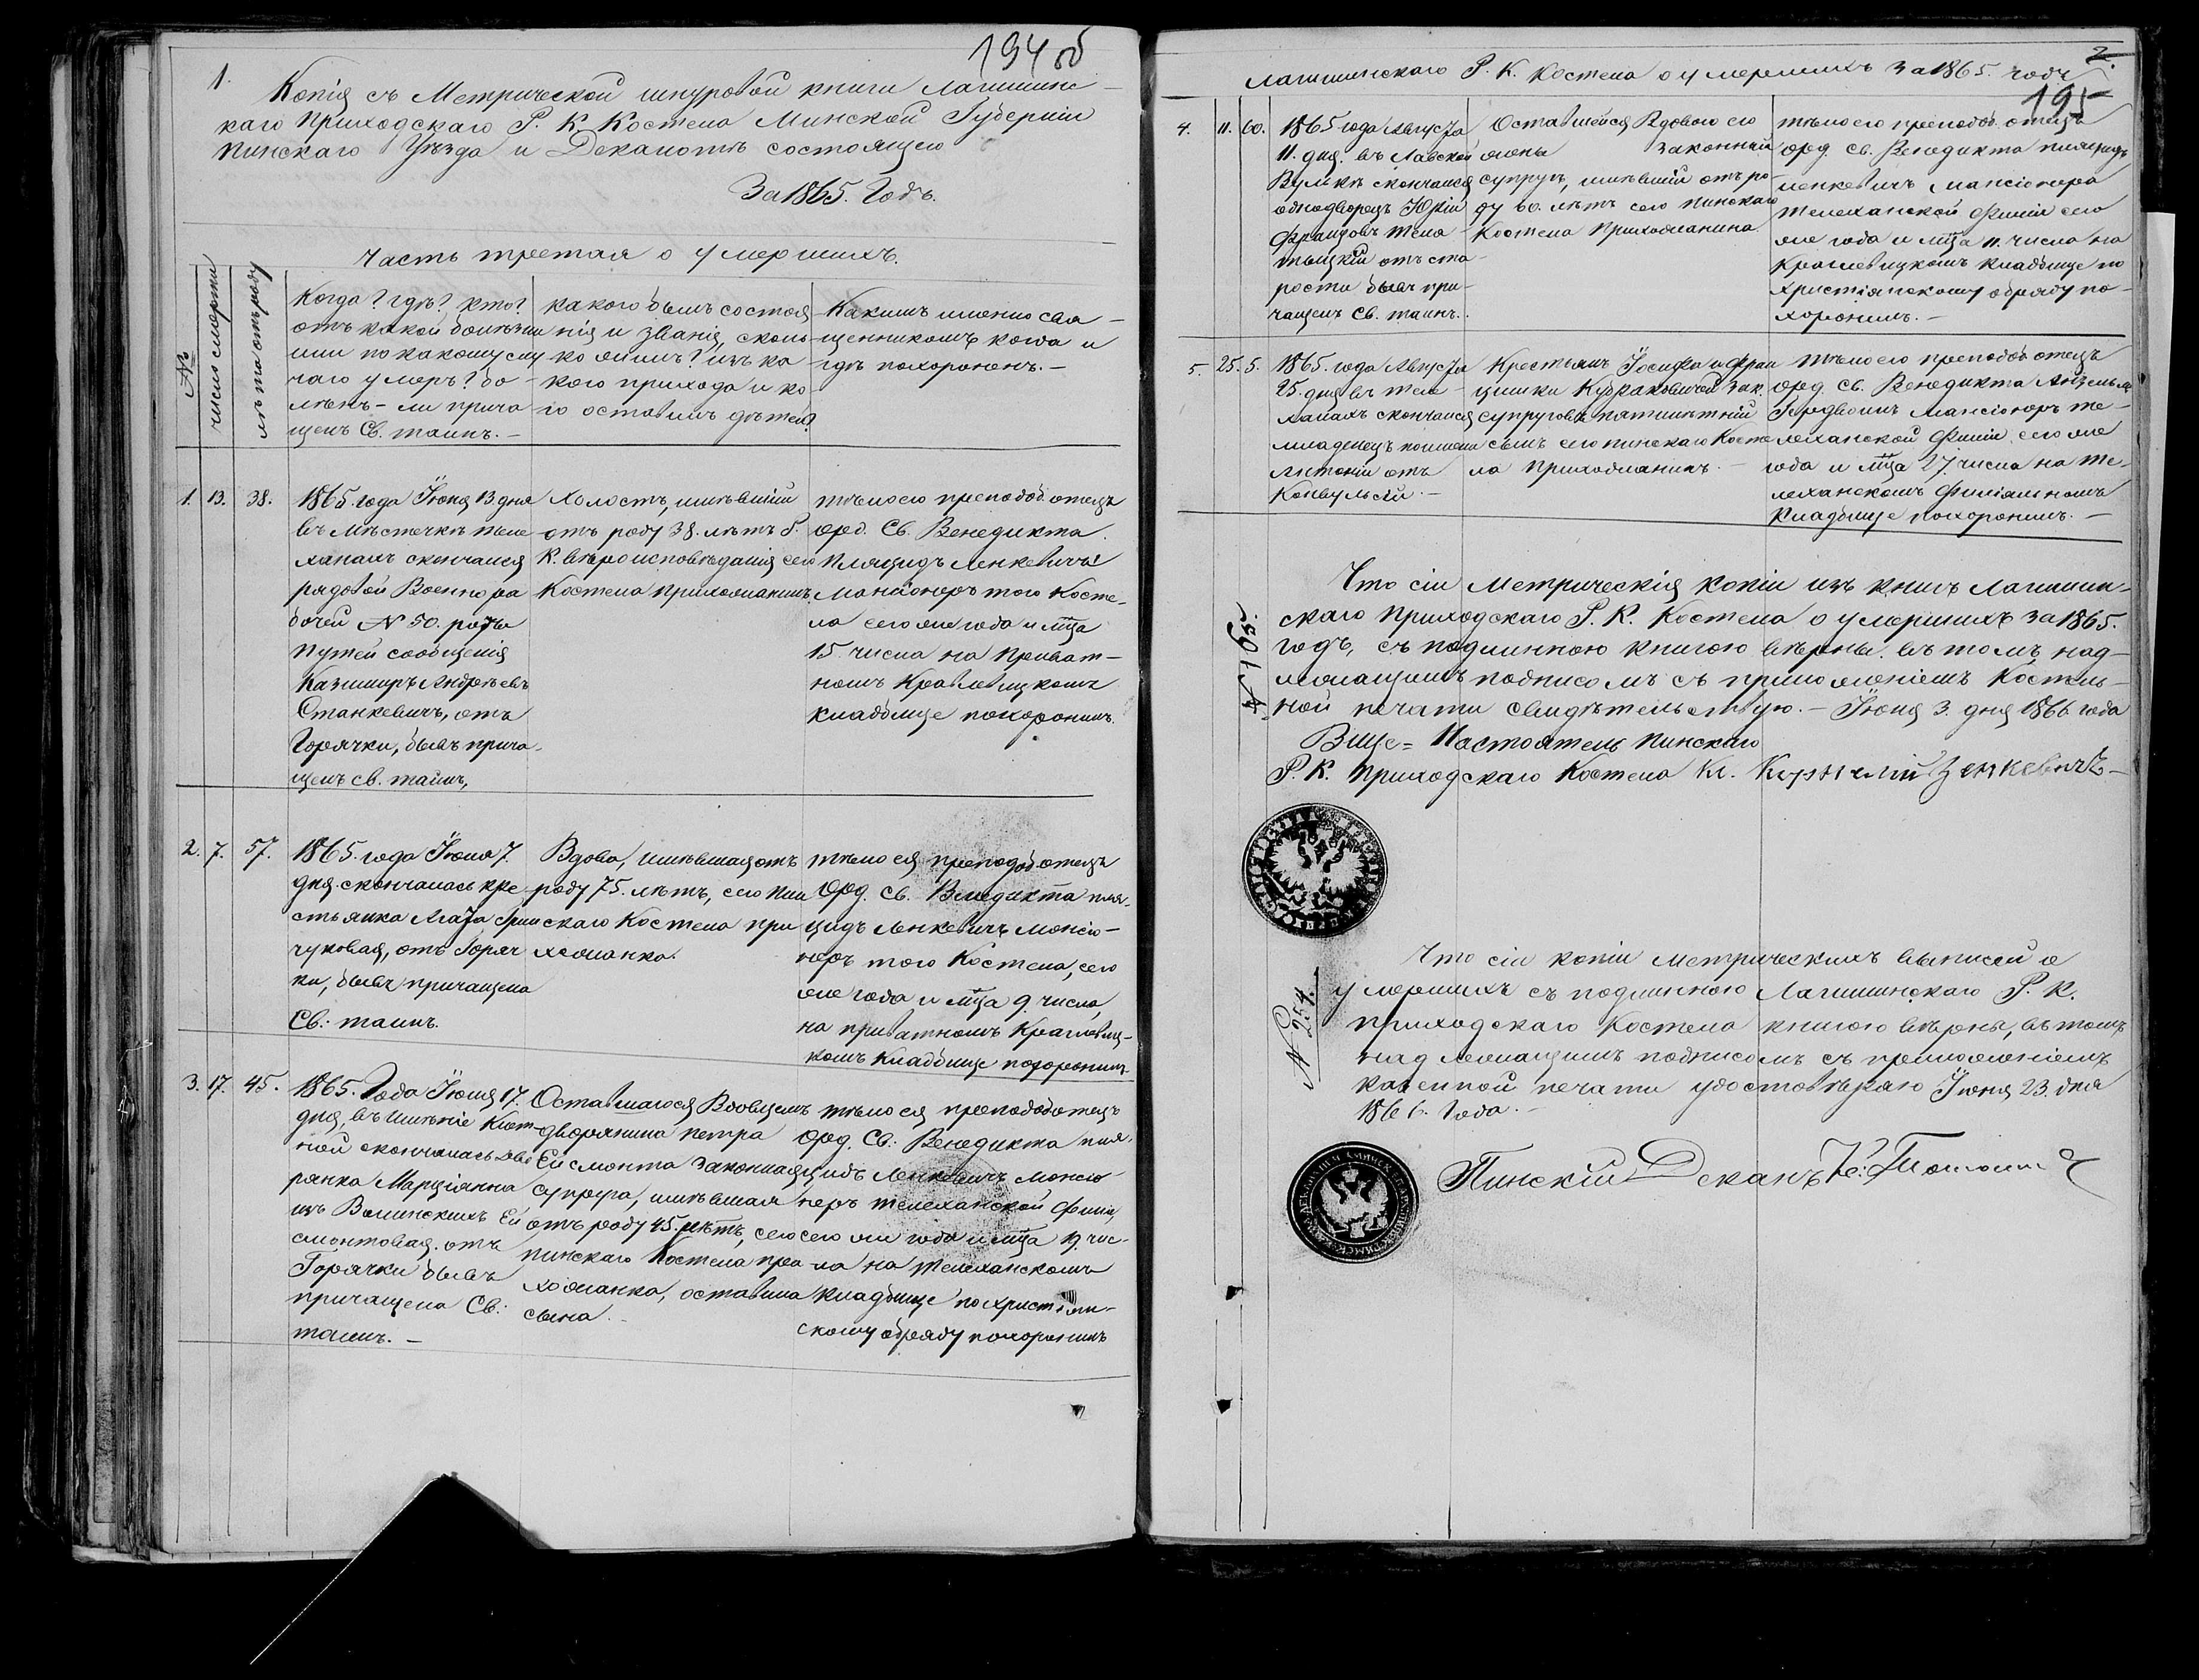 194 об
1.
Копія съ Метрической шнуровой книги Логишинс-
каго Приходскаго Р. К. Костела Минской Губерніи
Пинскаго Уѣзда и Деканатѣ состоящего
За 1865. Годъ.
Часть третая о умершихъ.
№
число смерти
лѣта отъ роду
Когда? гдѣ? кто?
отъ какой болѣзни
или по какому слу
чаю умеръ? бо-
лѣнъ-ли прича
щенъ Св. таинъ.-
какого былъ состоя
нія и званія, сколь
ко жилъ? изъ ка
кого прихода и ко
го оставилъ дѣтей?
Какимъ именно свя-
щенникомъ когда и
гдѣ похороненъ.-
1. 13. 38.
1865. года Іюня 13 дня
въ мѣстечкѣ Теле
ханахъ скончался
рядовой Военнора
бочей N 50. роты
Путей сообщенія
Казимиръ Андрѣевъ
Станкевичъ, отъ
Горячки, бывъ прича-
щенъ св. таинъ,
Холостъ, имѣвшій
отъ роду 38. лѣтъ Р.
К. вѣроисповѣданія сего
Костела прихожанинъ.
тѣло его преподоб. отецъ
орд. Св. Венедикта
Пляцидъ Ленкевичъ
Мансіонеръ того Косте-
ла сего же года и мца
15. числа на Приват-
номъ Краглевицкомъ
кладбище похоронилъ.
2. 7. 57.
1865. года Іюня 7.
дня скончалась кре
стьянка Агата Грин
чуковая, отъ Горяч
ки, бывъ причащена
Св: таинъ.
Вдова, имѣвшая отъ
роду 75. лѣтъ, сего Пин
скаго Костела при
хожанка.
тѣло ея преподоб. отецъ
Орд. Св. Венедикта пля-
цидъ Ленкевичъ Мансіо-
неръ того Костела, сего
же года и мца 9. числа,
на приватномъ Краглевиц-
комъ Кладбище похоронилъ.
3. 17. 45.
1865. Года Іюня 17.
дня, въ имѣніе
ной скончалась дво
рянка Марціанна
изъ Волинскихъ Ей
смонтовая. отъ
Горячки бывъ
причащена Св:
таинъ.-
Оставшагося Вдовцемъ
дворянина Петра
Ейсмонта законная
супруга, имѣвшая
отъ роду 45. лѣтъ, сего
Пинскаго Костела при
хожанка, оставила
сына.-
тѣло ея преподоб отецъ
орд. Св: Венедикта пля-
цидъ Ленкевичъ Мансіо
неръ Телеханской филіи,
сего же года и мца 19. чис-
ла на Телеханскомъ
Кладбище по христіян-
скому обряду похоронилъ
2.
Логишинскаго Р. К. Костела о умершихъ за 1865. годъ
195
4. 11. 60.
1865 года Августа
11. дня. въ Лавской
Вулькѣ скончался
однодворецъ Юрій
Францовъ
отъ ста-
рости бывъ при-
чащенъ Св. таинъ.
Оставшейся Вдовою его
жены законный
супругъ, имѣвшій отъ ро-
ду 60. лѣтъ сего Пинскаго
Костела Прихожанина
тѣло его преподоб. отецъ
орд. Св. Венедикта пляцидъ
Ленкевичъ Мансіонера
Телеханской Филіи сего
же года и мца 11. числа на
Краглевицкомъ кладбище по
Христіянскому обряду по-
хоронилъ.-
5. 25. 5.
1865. года Августа
25. дня въ Теле-
ханахъ скончался
младенецъ по имени
Антоній отъ
Конвульсій.-
Крестьянъ Іосифа и Фран
цишки Кубраковичей зак.
супруговъ пятилѣтній
сынъ сего пинскаго Косте
ла прихожанинъ.-
тѣло его преподоб отецъ
орд. Св. Венедикта Анзельмъ
Мансіонеръ Те-
леханской Филіи сего же
года и мца 27. числа на Те-
леханскомъ Филіальномъ
Кладбище похоронилъ.-
Что сіи Метрическія копіи изъ книгъ Логишин-
скаго Приходскаго Р. К. Костела о умершихъ за 1865.
годъ, съ подлинною книгою вѣрны. въ томъ над-
лежащимъ подписомъ съ приложеніемъ Костель-
ной печати свидѣтельствую.- Іюня 3. дня 1866 года
№ 195.
Вице=Настоятель Пинскаго
Р. К. Приходскаго Костела Кс. Корнелій Зенкевичъ-
Что сіи копіи Метрическихъ выписей о
умершихъ съ подлинною Логишинскаго Р. К.
приходскаго Костела книгою вѣрны, въ томъ
надлежащимъ подписомъ съ приложеніемъ
казенной печати удостовѣраю Іюня 23. дня
1866. Года.-
N 254.
Пинскій Деканъ